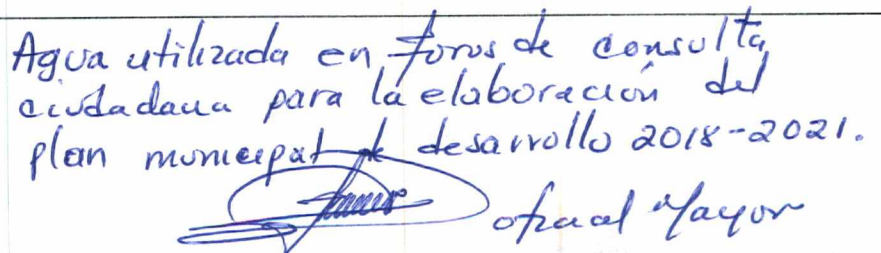 Agua utilizada en foros de consulta
ciudadana para la elaboración del
plan municipal de desarrollo 2018-2021.
oficial Mayor